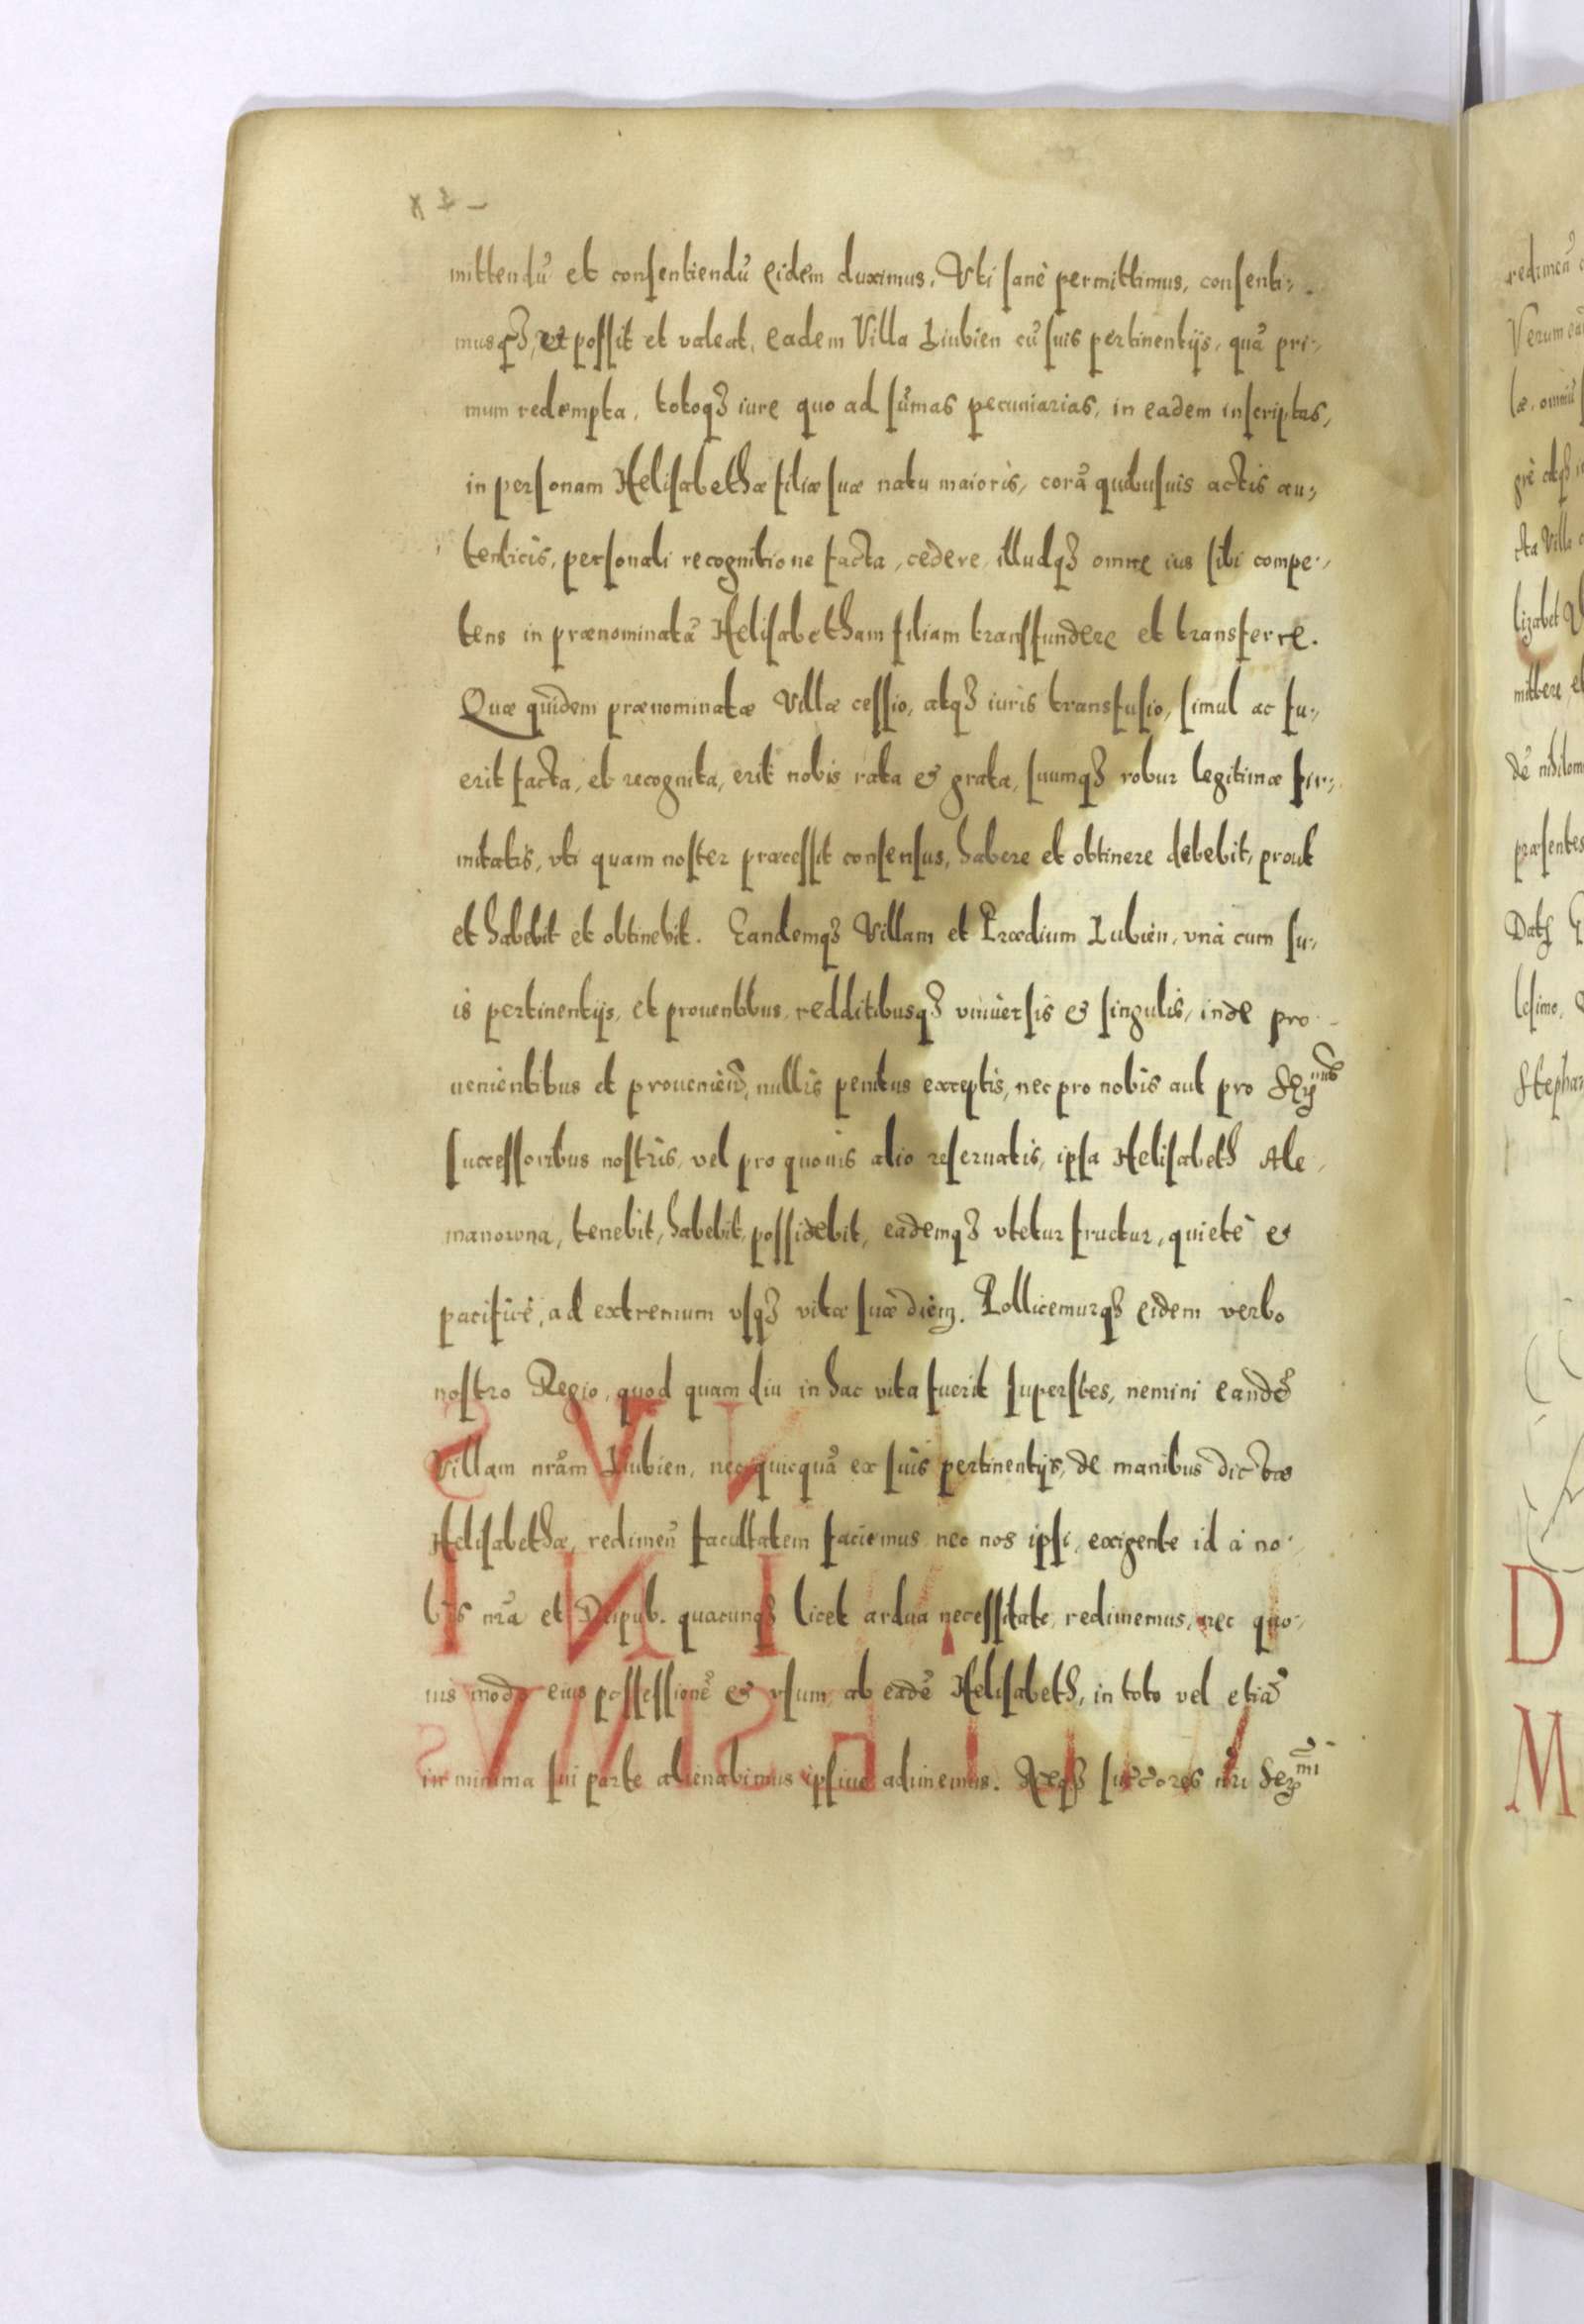 mittendũ et consentiendũ eidem duximus. Vti sanè permittimus, consenti-
musq3, et possit et valeat, eadem Villa Liubien cũ suis pertinentijs, quã pri-
mum redempta, totoq3 iure quo ad sũmas pecuniarias, in eadem inscriptas,
in personam Helisabethæ filiæ suæ natu maioris, corã quibusuis actis au-
tenticis, personali recognitione facta, cedere, illudq3 omne ius sibi compe-
tens in prænominatã Helisabetham filiam transfundere et transferre.
Quæ quidem prænominatæ Villæ cessio, atq3 iuris transfusio, simul ac fu-
erit facta, et recognita, erit nobis rata & grata, suumq3 robur legitimæ fir-
mitatis, vti quam noster præcessit consensus, habere et obtinere debebit, prout
et habebit et obtinebit. Eandemq3 Villam et Prædium Lubien, vnà cum su-
is pertinentijs, et prouentibus, redditibusq3 vniuersis & singulis, inde pro-
uenientibus et prouenieñ, nullis penitus exceptis, nec pro nobis aut pro
successoribus nostris, vel pro quouis alio reseruatis, ipsa Helisabeth Ale-
manowna, tenebit, habebit, possidebit, eademq3 vtetur fructur, quietè &
pacificè, ad extremum vsq3 vitæ suæ diem. Pollicemurq3 eidem verbo
nostro Regio, quod quam diu in hac vita fuerit superstes, nemini eandẽ
Villam nrãm Lubien, nec quicquã ex suis pertinentijs, de manibus dictæ
Helisabethæ, redimeñ facultatem faciemus nec nos ipsi, exigente id à no-
bis nrã et Reipub. quacunq3 licet ardua necessitate, redimemus, nec quo-
uis modo eius possessionẽ & vsum, ab eadẽ Helisabeth, in toto vel etiã
in minima sui parte alienabimus ipsiue adimemus. Neq3 succores nri Sermi